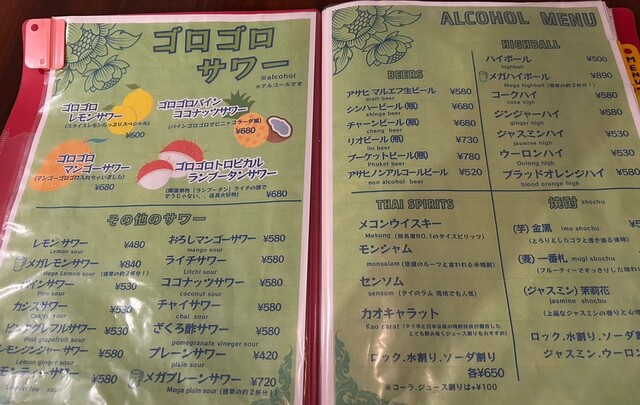 ゴロゴロ
サワー
※alcohol
※アルコールです
ゴロゴロ
レモンサワー
(スライスレモンたっぷりスペシャル)
¥600
ゴロゴロパイン
ココナッツサワー
(パインゴロゴロでピニャコラーダ風)
¥680
ゴロゴロ
マンゴーサワー
(マンゴーゴロゴロ入れちゃいました)
¥680
ゴロゴロトロピカル
ランブータンサワー
¥680
その他のサワー
レモンサワー ¥480
Lemon sour
メガレモンサワー ¥840
Mega Lemon sour (通常の約2杯分!)
パインサワー ¥530
Pine sour
カシスサワー ¥530
ピンクグレフルサワー ¥530
Pink grapefruit sour
レモンジンジャーサワー ¥580
Lemon ginger sour
¥580
おろしマンゴーサワー ¥580
mango sour
ライチサワー ¥580
Litchi sour
ココナッツサワー ¥580
coconut sour
チャイサワー ¥580
chai sour
ざくろ酢サワー ¥580
pomegranate vineger sour
プレーンサワー ¥420
plain sour
メガプレーンサワー ¥720
Mega plain sour (通常の約2杯分!)
ALCOHOL MENU
BEERS
アサヒ マルエフ生ビール ¥580
draft beer
シンハービール(瓶) ¥680
shinga beer
チャーンビール(瓶) ¥680
chang beer
リオビール(瓶) ¥730
lio beer
プーケットビール(瓶) ¥780
Phuket beer
アサヒノンアルコールビール ¥520
non alcohol beer
HIGHBALL
ハイボール ¥500
highball
メガハイボール ¥890
Mega highball (通常の約2杯分!)
コークハイ ¥580
coke high
ジンジャーハイ ¥580
ginger high
ジャスミンハイ ¥580
Jasmine high
ウーロンハイ ¥580
Oolong high
ブラッドオレンジハイ ¥580
blood orange high
THAI SPIRITS
メコンウイスキー
Mekong (知名度NO.1のタイスピリッツ)
モンシャム
monsalam (泡盛のルーツと言われる米焼酎)
センソム
sensom (タイのラム 現地でも人気)
カオキャラット
Kao carat
ロック、水割り、ソーダ割り
各¥650
※コーラ、ジュース割りは+¥100
焼酎 shochu
(芋) 金黒 imo shochu
(とろりとしたコクと透き通る後味)
(麦) 一番札 mugi shochu
(ジャスミン) 茉莉花
jasmine shochu
ロック、水割り、ソーダ割